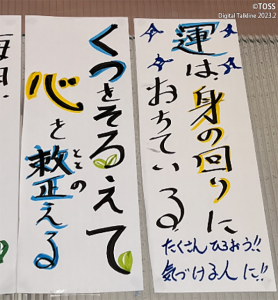 ©TOSS
Digital Talkline 2023.2
運は、身の回りに
おちている
たくさんひろおう!!
気づける人に!!
くつをそろえて
心を整える
ととの